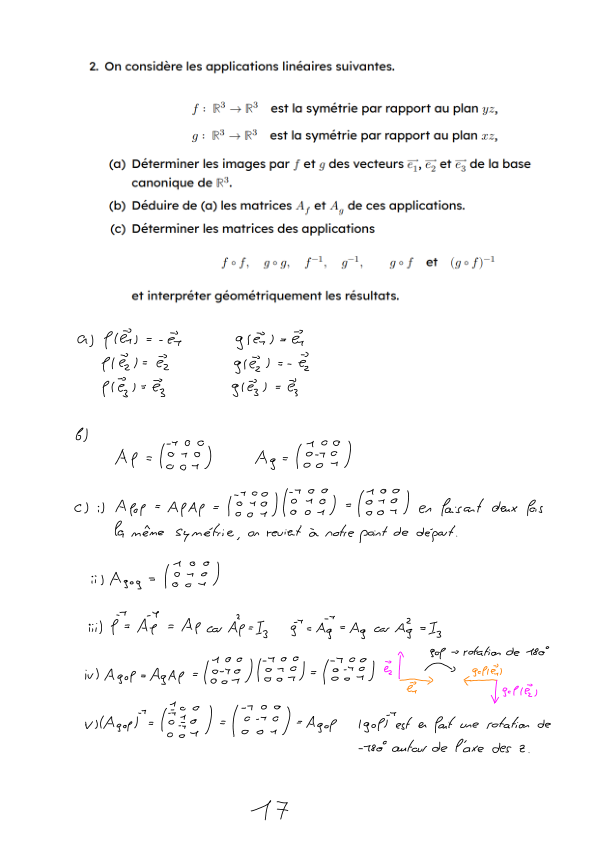 2. On considère les applications linéaires suivantes.
f : ℝ³ → ℝ³ est la symétrie par rapport au plan yz,
g : ℝ³ → ℝ³ est la symétrie par rapport au plan xz,
(a) Déterminer les images par f et g des vecteurs e₁⃗, e₂⃗ et e₃⃗ de la base
canonique de ℝ³.
(b) Déduire de (a) les matrices A_f et A_g de ces applications.
(c) Déterminer les matrices des applications
f ∘ f, g ∘ g, f⁻¹, g⁻¹, g ∘ f et (g ∘ f)⁻¹
et interpréter géométriquement les résultats.
a) f(e₁⃗) = -e₁⃗ g(e₁⃗) = e₁⃗
f(e₂⃗) = e₂⃗ g(e₂⃗) = -e₂⃗
f(e₃⃗) = e₃⃗ g(e₃⃗) = e₃⃗
b)
Af = (-1 0 0 / 0 1 0 / 0 0 1) Ag = (1 0 0 / 0 -1 0 / 0 0 1)
c) i) Af∘f = Af Af = (-1 0 0 / 0 1 0 / 0 0 1)(-1 0 0 / 0 1 0 / 0 0 1) = (1 0 0 / 0 1 0 / 0 0 1) en faisant deux fois
la même symétrie, on revient à notre point de départ.
ii) Ag∘g = (1 0 0 / 0 1 0 / 0 0 1)
iii) f⁻¹ = Af⁻¹ = Af car Af² = I₃ g⁻¹ = Ag⁻¹ = Ag car Ag² = I₃
g∘f → rotation de 180°
iv) Ag∘f = Ag Af = (1 0 0 / 0 -1 0 / 0 0 1)(-1 0 0 / 0 1 0 / 0 0 1) = (-1 0 0 / 0 -1 0 / 0 0 1) e₂⃗ e₁⃗ g∘f(e₁⃗)
g∘f(e₂⃗)
v) (Ag∘f)⁻¹ = = (-1 0 0 / 0 -1 0 / 0 0 1) = Ag∘f (g∘f)⁻¹ est en fait une rotation de
-180° autour de l'axe des z.
17